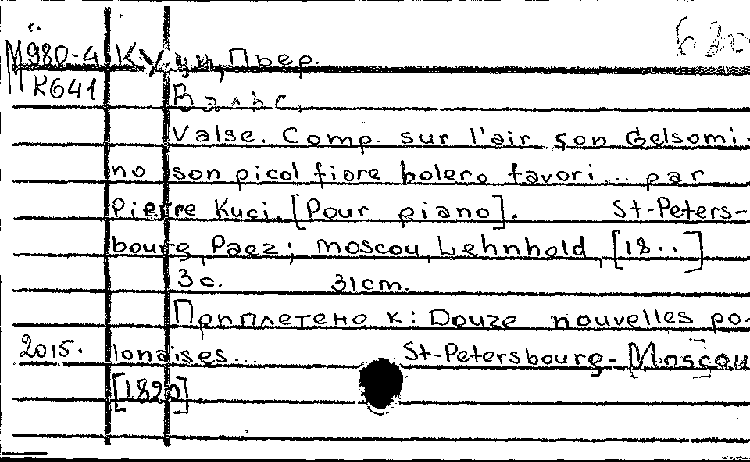 620
М980-4 Кучи, Пьер.
К641
Вальс.
Valse. Comp. sur l'air son Gelsomi-
no son picol fiore bolero favori... par
Pierre Kuci. [Pour piano]. St-Peters-
bourg, Paez; Moscou, Lehnhold, [18..]
3с. 31cm.
Приплетено к: Douze nouvelles po-
2015. lonaises... St-Petersbourg-Moscou
[1820]